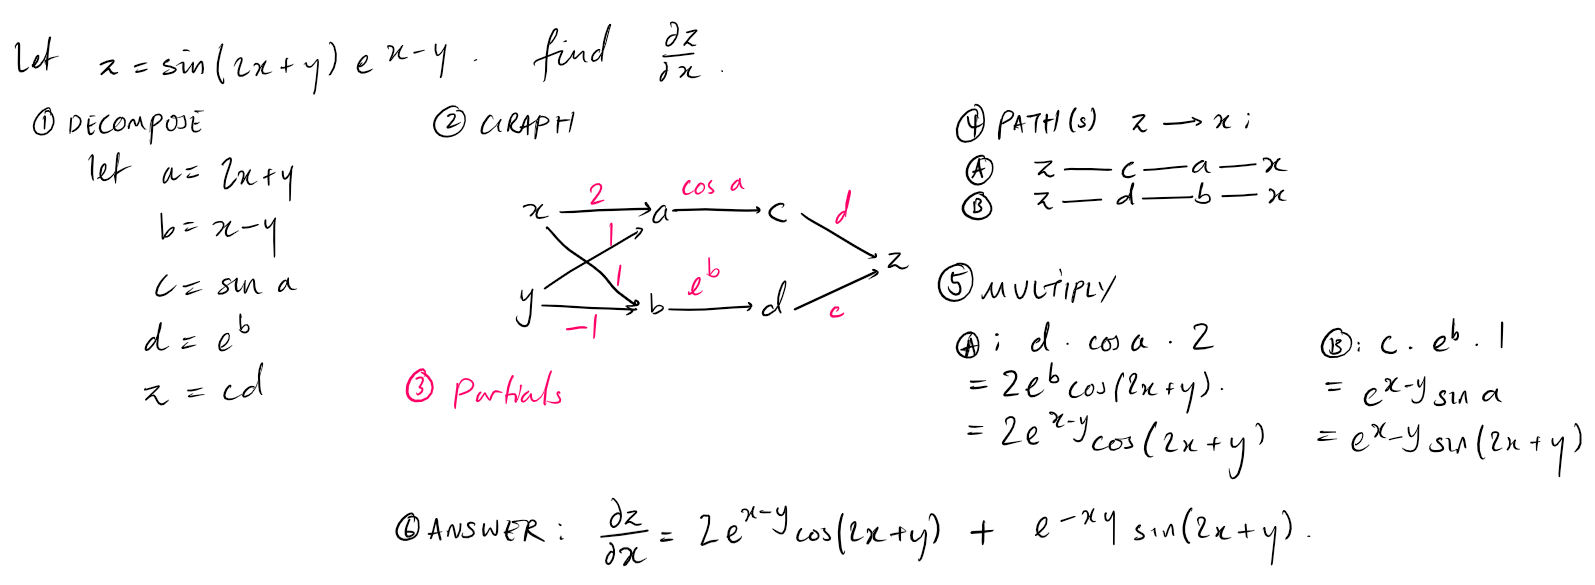 Let z = sin(2x+y) e^{x-y} . find ∂z/∂x .
① DECOMPOSE
let a = 2x+y
b = x-y
c = sin a
d = e^b
z = cd
② GRAPH
x 2 a cos a c d
1
1
z
y -1 b e^b d c
③ Partials
④ PATH(s) z → x ;
Ⓐ z — c — a — x
Ⓑ z — d — b — x
⑤ MULTIPLY
Ⓐ ; d . cos a . 2
= 2e^b cos(2x+y) .
= 2e^{x-y} cos(2x+y)
Ⓑ : c . e^b . 1
= e^{x-y} sin a
= e^{x-y} sin(2x+y)
⑥ ANSWER : ∂z/∂x = 2e^{x-y} cos(2x+y) + e^{-xy} sin(2x+y) .